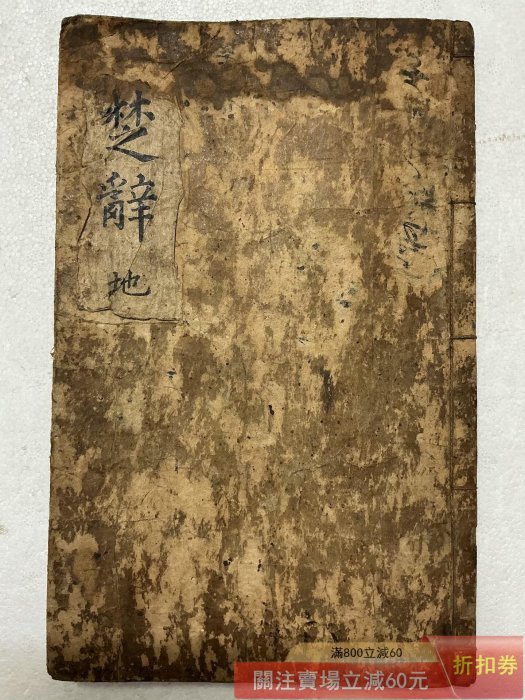 楚辭
地
滿800立減60
關注賣場立減60元
折扣券